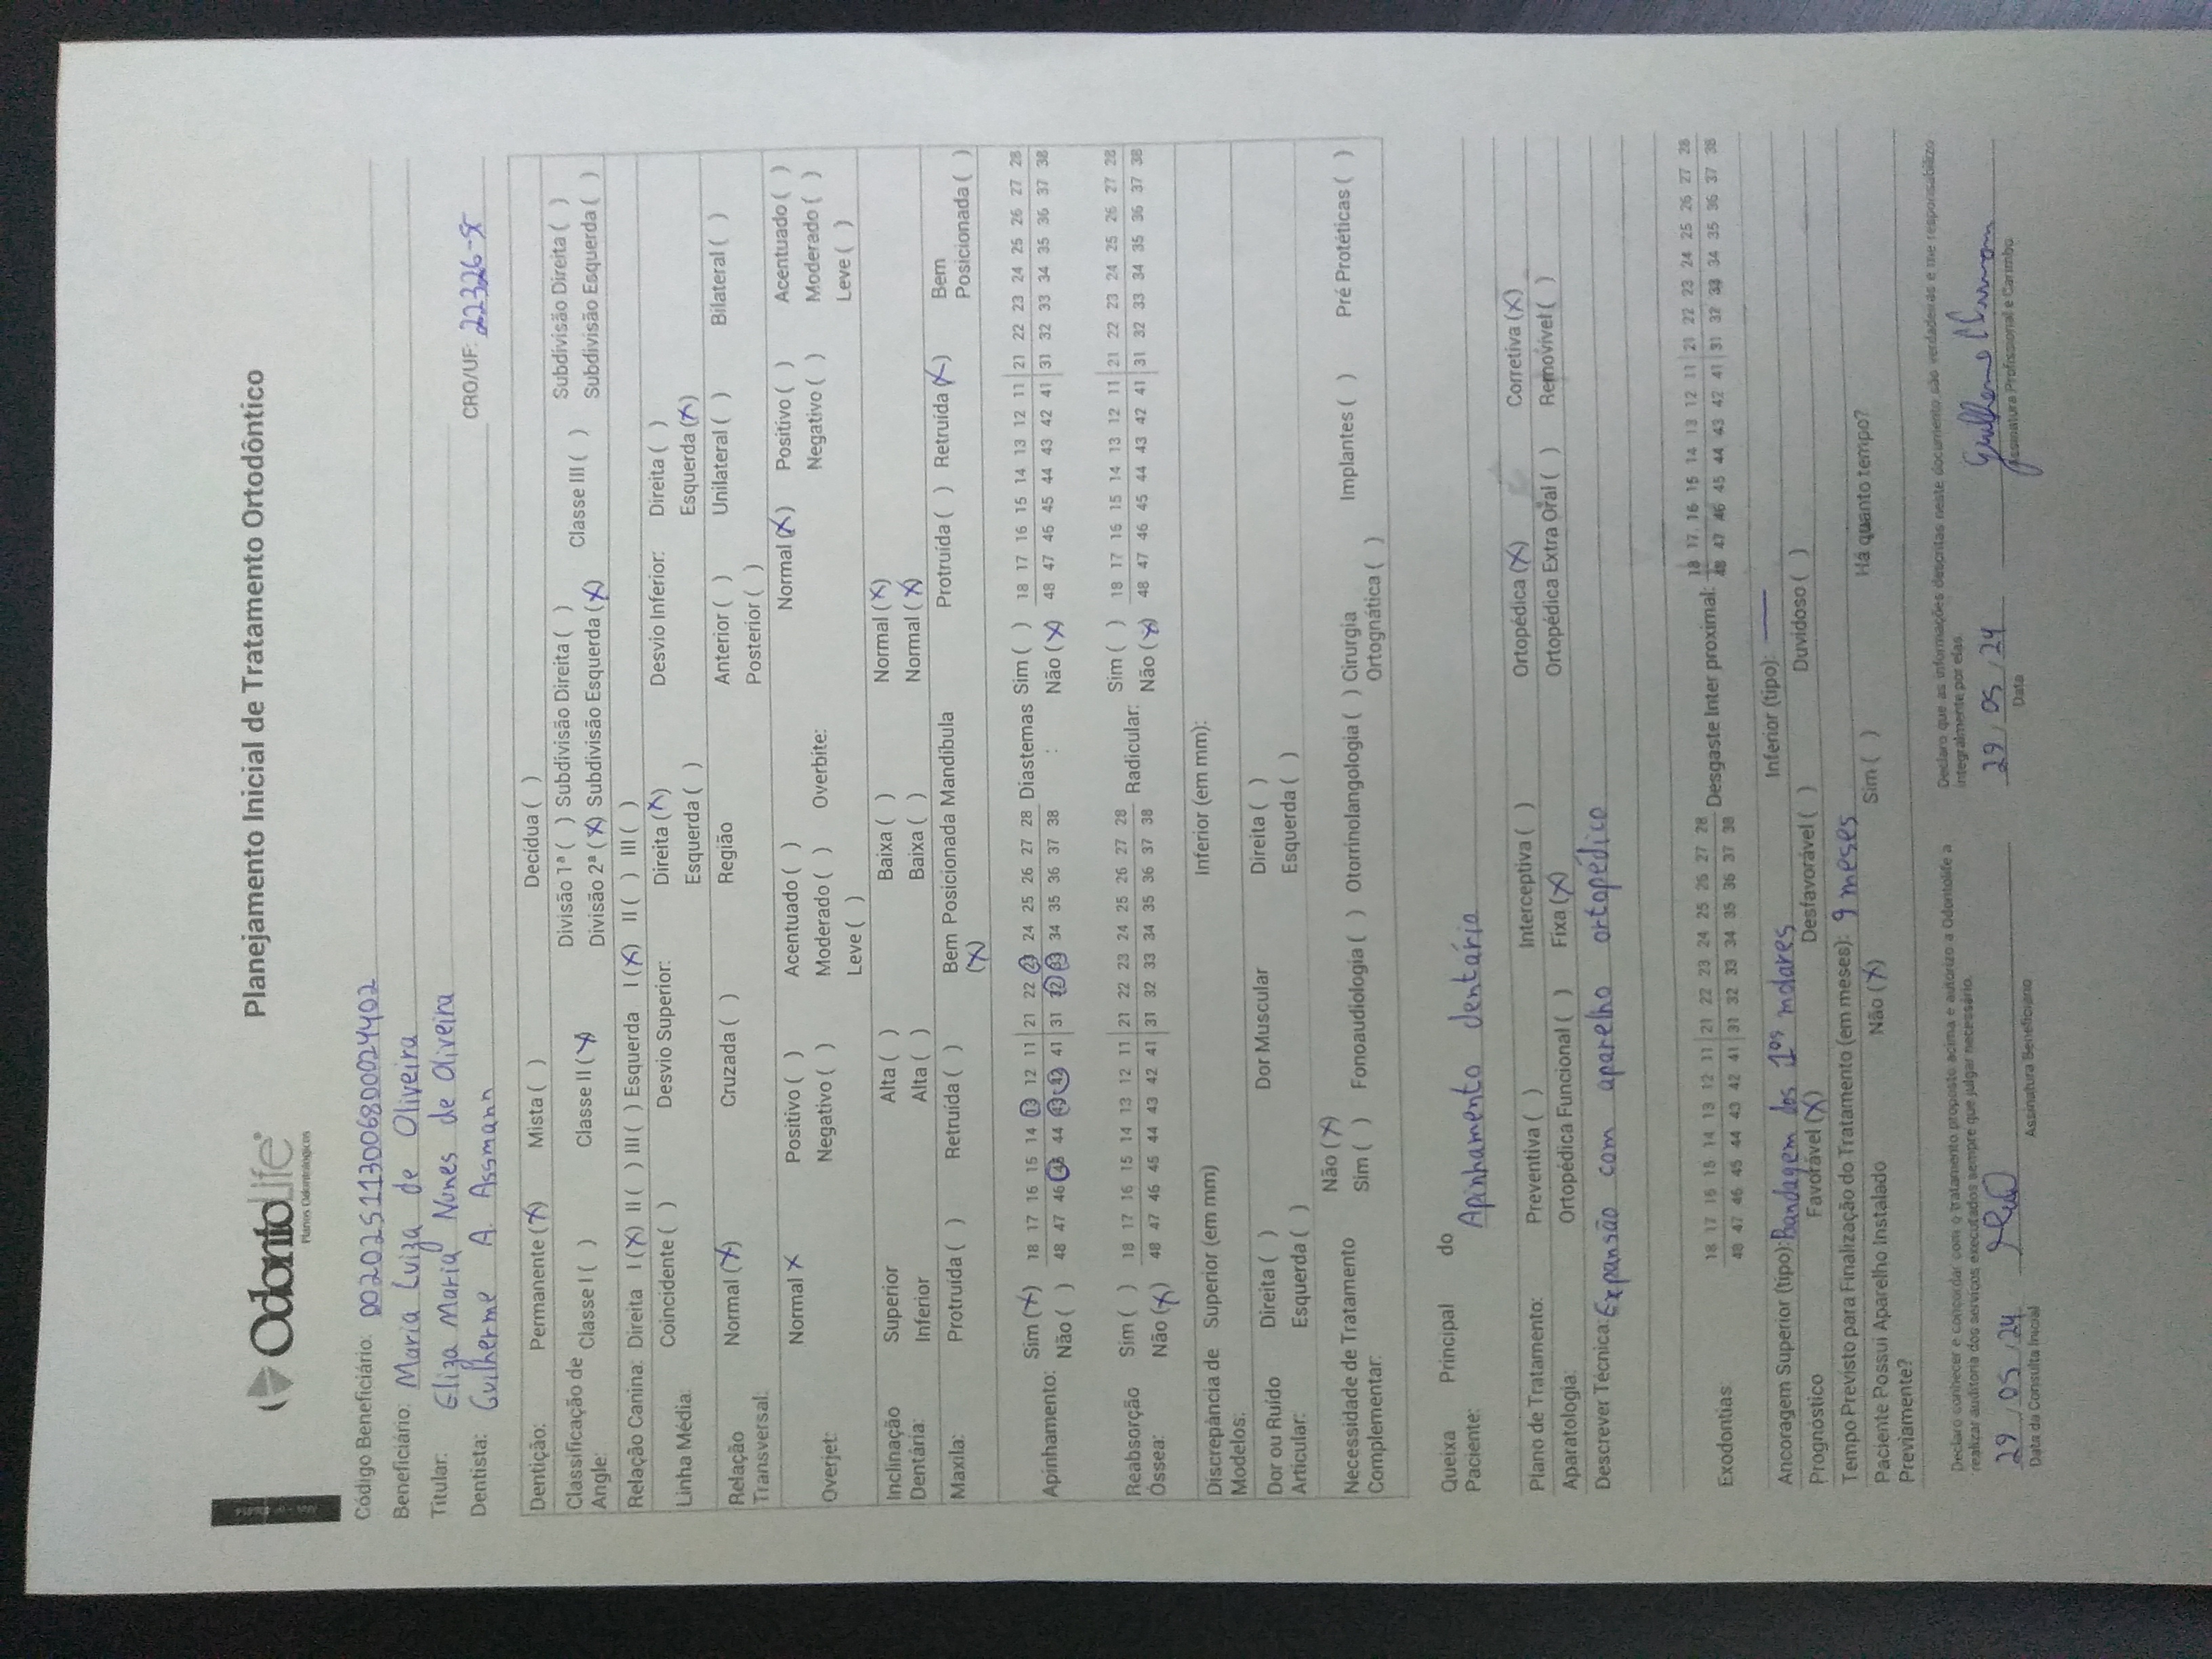 OdontoLife
Planos Odontológicos
Planejamento Inicial de Tratamento Ortodôntico
Código Beneficiário: 002025113006800024402
Beneficiário: Maria Luiza de Oliveira
Titular: Eliza Maria Nunes de Oliveira
Dentista: Guilherme A. Assmann CRO/UF: 22326-
Dentição: Permanente (X) Mista ( ) Decídua ( )
Classificação de Angle: Classe I ( ) Classe II (X) Divisão 1ª ( ) Subdivisão Direita ( ) Classe III ( ) Subdivisão Direita ( )
Divisão 2ª (X) Subdivisão Esquerda (X) Subdivisão Esquerda ( )
Relação Canina: Direita I (X) II ( ) III ( ) Esquerda I (X) II ( ) III ( )
Linha Média Coincidente ( ) Desvio Superior: Direita (X) Desvio Inferior: Direita ( )
Esquerda ( ) Esquerda (X)
Relação Transversal: Normal (X) Cruzada ( ) Região Anterior ( ) Unilateral ( ) Bilateral ( )
Posterior ( )
Overjet: Normal X Positivo ( ) Acentuado ( ) Overbite: Normal (X) Positivo ( ) Acentuado ( )
Negativo ( ) Moderado ( ) Negativo ( ) Moderado ( )
Leve ( ) Leve ( )
Inclinação Dentária: Superior Alta ( ) Baixa ( ) Normal (X)
Inferior Alta ( ) Baixa ( ) Normal (X)
Maxila: Protruída ( ) Retruída ( ) Bem Posicionada (X) Mandíbula Protruída ( ) Retruída (X) Bem Posicionada ( )
Apinhamento: Sim (X) 18 17 16 15 14 13 12 11 | 21 22 23 24 25 26 27 28 Diastemas : Sim ( ) 18 17 16 15 14 13 12 11 | 21 22 23 24 25 26 27 28
Não ( ) 48 47 46 45 44 43 42 41 | 31 32 33 34 35 36 37 38 Não (X) 48 47 46 45 44 43 42 41 | 31 32 33 34 35 36 37 38
Reabsorção Óssea: Sim ( ) 18 17 16 15 14 13 12 11 | 21 22 23 24 25 26 27 28 Radicular: Sim ( ) 18 17 16 15 14 13 12 11 | 21 22 23 24 25 26 27 28
Não (X) 48 47 46 45 44 43 42 41 | 31 32 33 34 35 36 37 38 Não (X) 48 47 46 45 44 43 42 41 | 31 32 33 34 35 36 37 38
Discrepância de Modelos: Superior (em mm) Inferior (em mm):
Dor ou Ruído Articular: Direita ( ) Dor Muscular Direita ( )
Esquerda ( ) Esquerda ( )
Necessidade de Tratamento Complementar: Não (X)
Sim ( ) Fonoaudiologia ( ) Otorrinolangologia ( ) Cirurgia Ortognática ( ) Implantes ( ) Pré Protéticas ( )
Queixa Principal do Paciente: Apinhamento dentário
Plano de Tratamento: Preventiva ( ) Interceptiva ( ) Ortopédica (X) Corretiva (X)
Aparatologia: Ortopédica Funcional ( ) Fixa (X) Ortopédica Extra Oral ( ) Removível ( )
Descrever Técnica: Expansão com aparelho ortopédico
Exodontias: 18 17 16 15 14 13 12 11 | 21 22 23 24 25 26 27 28 Desgaste Inter proximal: 18 17 16 15 14 13 12 11 | 21 22 23 24 25 26 27 28
48 47 46 45 44 43 42 41 | 31 32 33 34 35 36 37 38 48 47 46 45 44 43 42 41 | 31 32 33 34 35 36 37 38
Ancoragem Superior (tipo): Bandagem dos 1ºs molares Inferior (tipo): —
Prognóstico Favorável (X) Desfavorável ( ) Duvidoso ( )
Tempo Previsto para Finalização do Tratamento (em meses): 9 meses
Paciente Possui Aparelho Instalado Previamente? Não (X) Sim ( ) Há quanto tempo?
Declaro conhecer e concordar com o tratamento proposto acima e autorizo a Odontolife a
realizar auditoria dos serviços executados sempre que julgar necessário.
Declaro que as informações descritas neste documento são verdadeiras e me responsabilizo
integralmente por elas.
29/05/24 29/05/24
Data da Consulta Inicial Assinatura Beneficiário Data Assinatura Profissional e Carimbo